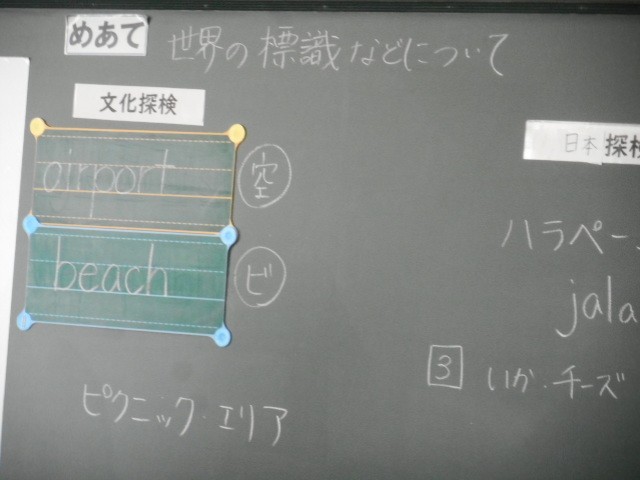 めあて 世界の標識などについて
文化探検
airport 空
beach ビ
ピクニック・エリア
日本 探検
ハラペー
jala
3 いか・チーズ